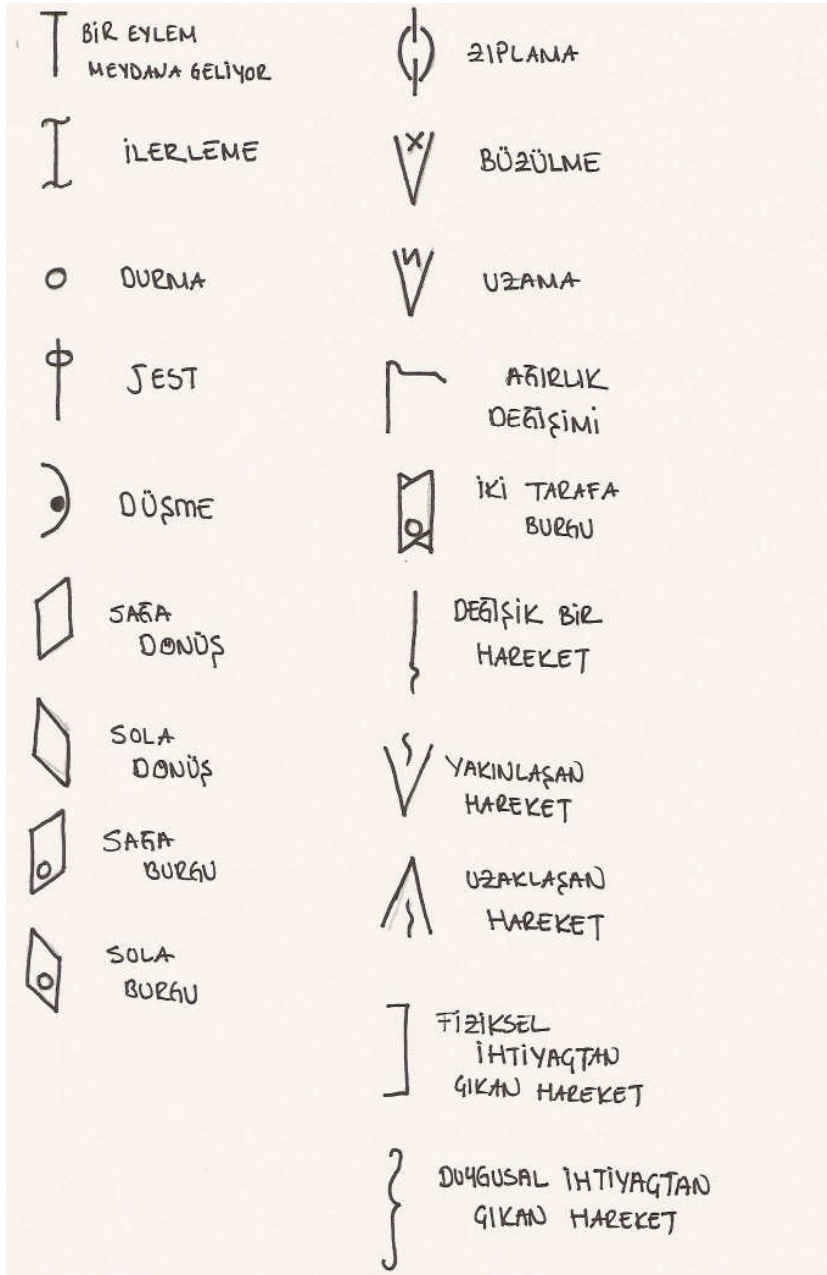 BİR EYLEM
MEYDANA GELİYOR
İLERLEME
DURMA
JEST
DÜŞME
SAĞA
DÖNÜŞ
SOLA
DÖNÜŞ
SAĞA
BURGU
SOLA
BURGU
ZIPLAMA
BÜZÜLME
UZAMA
AĞIRLIK
DEĞİŞİMİ
İKİ TARAFA
BURGU
DEĞİŞİK BİR
HAREKET
YAKINLAŞAN
HAREKET
UZAKLAŞAN
HAREKET
FİZİKSEL
İHTİYAÇTAN
ÇIKAN HAREKET
DUYGUSAL İHTİYAÇTAN
ÇIKAN HAREKET